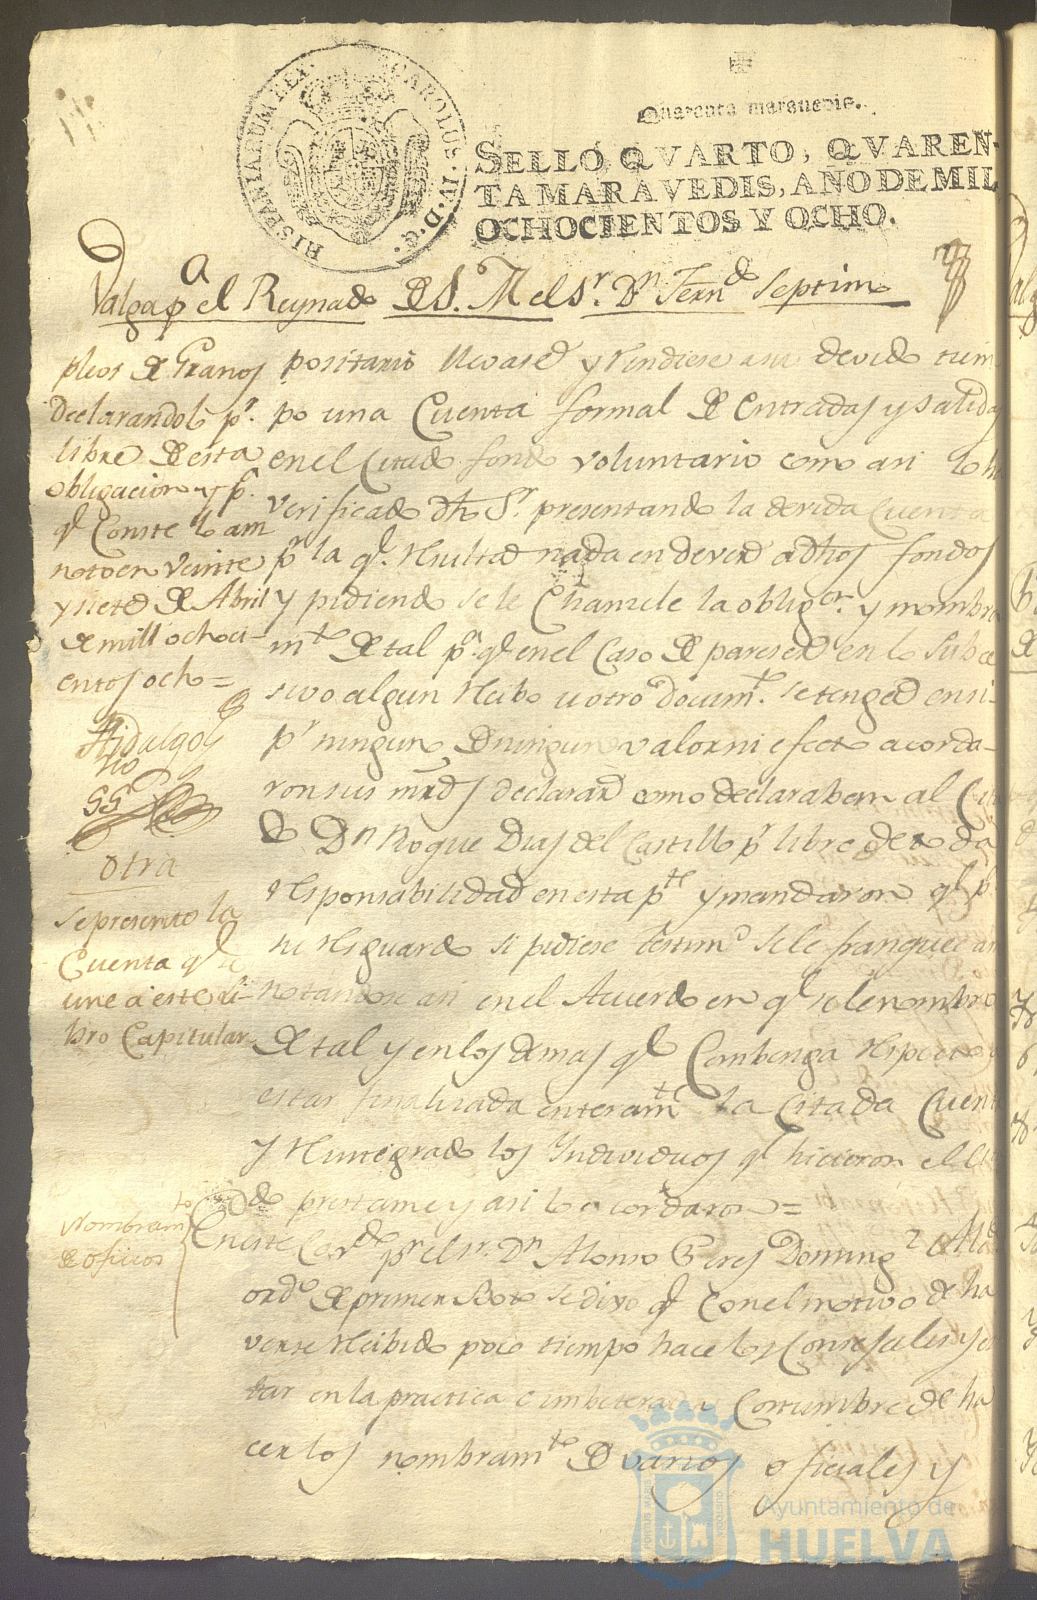 HISPANIARUM REX CAROLUS IV D. G.
Quarenta marauedis.
SELLO QVARTO, QVAREN-
TA MARAVEDIS, AÑO DE MIL
OCHOCIENTOS Y OCHO.
Valga pa el Reynado de S. M. el Sr. Dn Fernd Septimo
pleos de Granos
declarandolo pr.
libre de esta
obligacion y pa.
qe Conste lo am
noto en veinte
y siete de Abril
de mill ochoci-
entos ocho=
Hidalgo
SSo
otra
se presento la
Cuenta qe se
une a este Li-
bro Capitular
positario llevase y rindiese a su devido tiem
po una Cuenta formal de entradas y salidas
en el Citado fondo voluntario como asi lo ha
verificado dho Sr. presentando la devida Cuenta
pr la qe. resulta nada en dever a dhos fondos
y pidiendo se le Chancele la obligon. y nombra
mto de tal pa. qe en el Caso de pareser en lo subce
sivo algun recibo u otro docum.to se tenga en si
pr ningun de ningun valor ni efecto acorda-
ron sus mrds declarar como declaraban al Cita
do Dn Roque Dias del Castillo pr libre de toda
responsabilidad en esta pte y mandaron qe pa
su resguardo si pidiese testimo se le franquee an
notandose asi en el Acuerdo en qe se le nombro
de tal y en los demas qe Conbenga respecto a
estar finalizada enteramte la Citada Cuenta
y reintegrado los Yndividuos qe hicieron el Ci
tado prestamo y asi lo acordaron=
Nombramto
de oficios
En este Cavdo pr el sr. Dn Alonso Peres Doming.z Alcde
ordo de primer Boto se dixo qe con el motivo de ha
verse recibido poco tiempo hace los Consejales y es
tar en la practica e imbeterada Costumbre de ha
cer los nombramtos de varios oficiales y
Ayuntamiento de
HUELVA